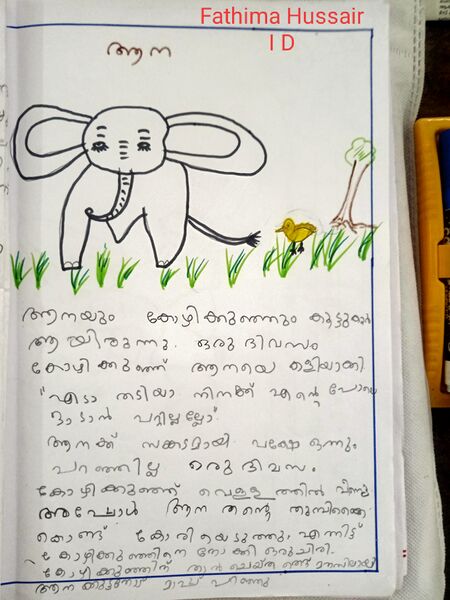 Fathima Hussair
I D
ആന
ആനയും കോഴിക്കുഞ്ഞും കൂട്ടുകാർ
ആയിരുന്നു. ഒരു ദിവസം
കോഴിക്കുഞ്ഞ് ആനയെ കളിയാക്കി
"എടാ തടിയാ നിനക്ക് എന്റെ പോലെ
ഓടാൻ പറ്റില്ലല്ലോ"
ആനക്ക് സങ്കടമായി. പക്ഷേ ഒന്നും
പറഞ്ഞില്ല ഒരു ദിവസം
കോഴിക്കുഞ്ഞ് വെള്ളത്തിൽ വീണു
അപ്പോൾ ആന തന്റെ തുമ്പിക്കൈ
കൊണ്ട് കോരിയെടുത്തു. എന്നിട്ട്
കോഴിക്കുഞ്ഞിനെ നോക്കി ഒരുചിരി.
കോഴിക്കുഞ്ഞിന് താൻ ചെയ്ത തെറ്റ് മനസിലായി
ആന കുട്ടനോട് മാപ്പ് പറഞ്ഞു